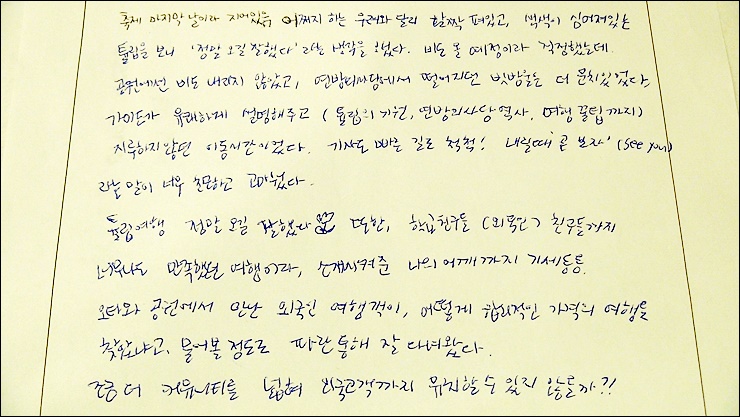 축제 마지막 날이라 지어있음 어쩌지 하는 우려와 달리 활짝 펴있고, 색색이 심어져있는
튤립을 보니 '정말 오길 잘했다' 라는 생각을 했다. 비도 올 예정이라 걱정했는데.
공원에선 비도 내리지 않았고, 연방의사당에서 떨어지던 빗방울은 더 운치있었다.
가이드가 유쾌하게 설명해주고 (튤립의 기원, 연방의사당 역사, 여행 꿀팁까지)
지루하지않던 이동시간이었다. 기사도 빠른 길로 척척! 내릴때 '곧 보자' (see you)
라는 말이 너무 친근하고 고마웠다.
튤립여행 정말 오길 잘했다 또한, 학급친구들 (외국인) 친구들까지
너무나도 만족했던 여행이라, 소개시켜준 나의 어깨까지 기세등등.
오타와 공원에서 만난 외국인 여행객이, 어떻게 합리적인 가격의 여행을
찾았냐고, 물어볼 정도로 파란통해 잘 다녀왔다.
조금 더 커뮤니티를 넓혀 외국고객까지 유치할 수 있지 않을까?!